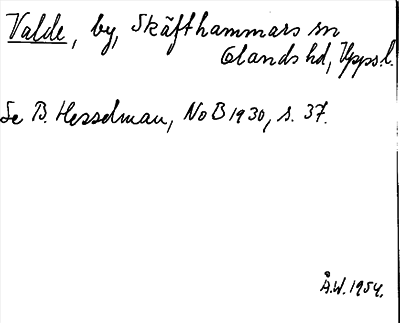 Valde, by, Skäfthammars sn
Olands hd, Upps. l.
Se B. Hesselman, NoB 1930, s. 37.
Å.W. 1954.